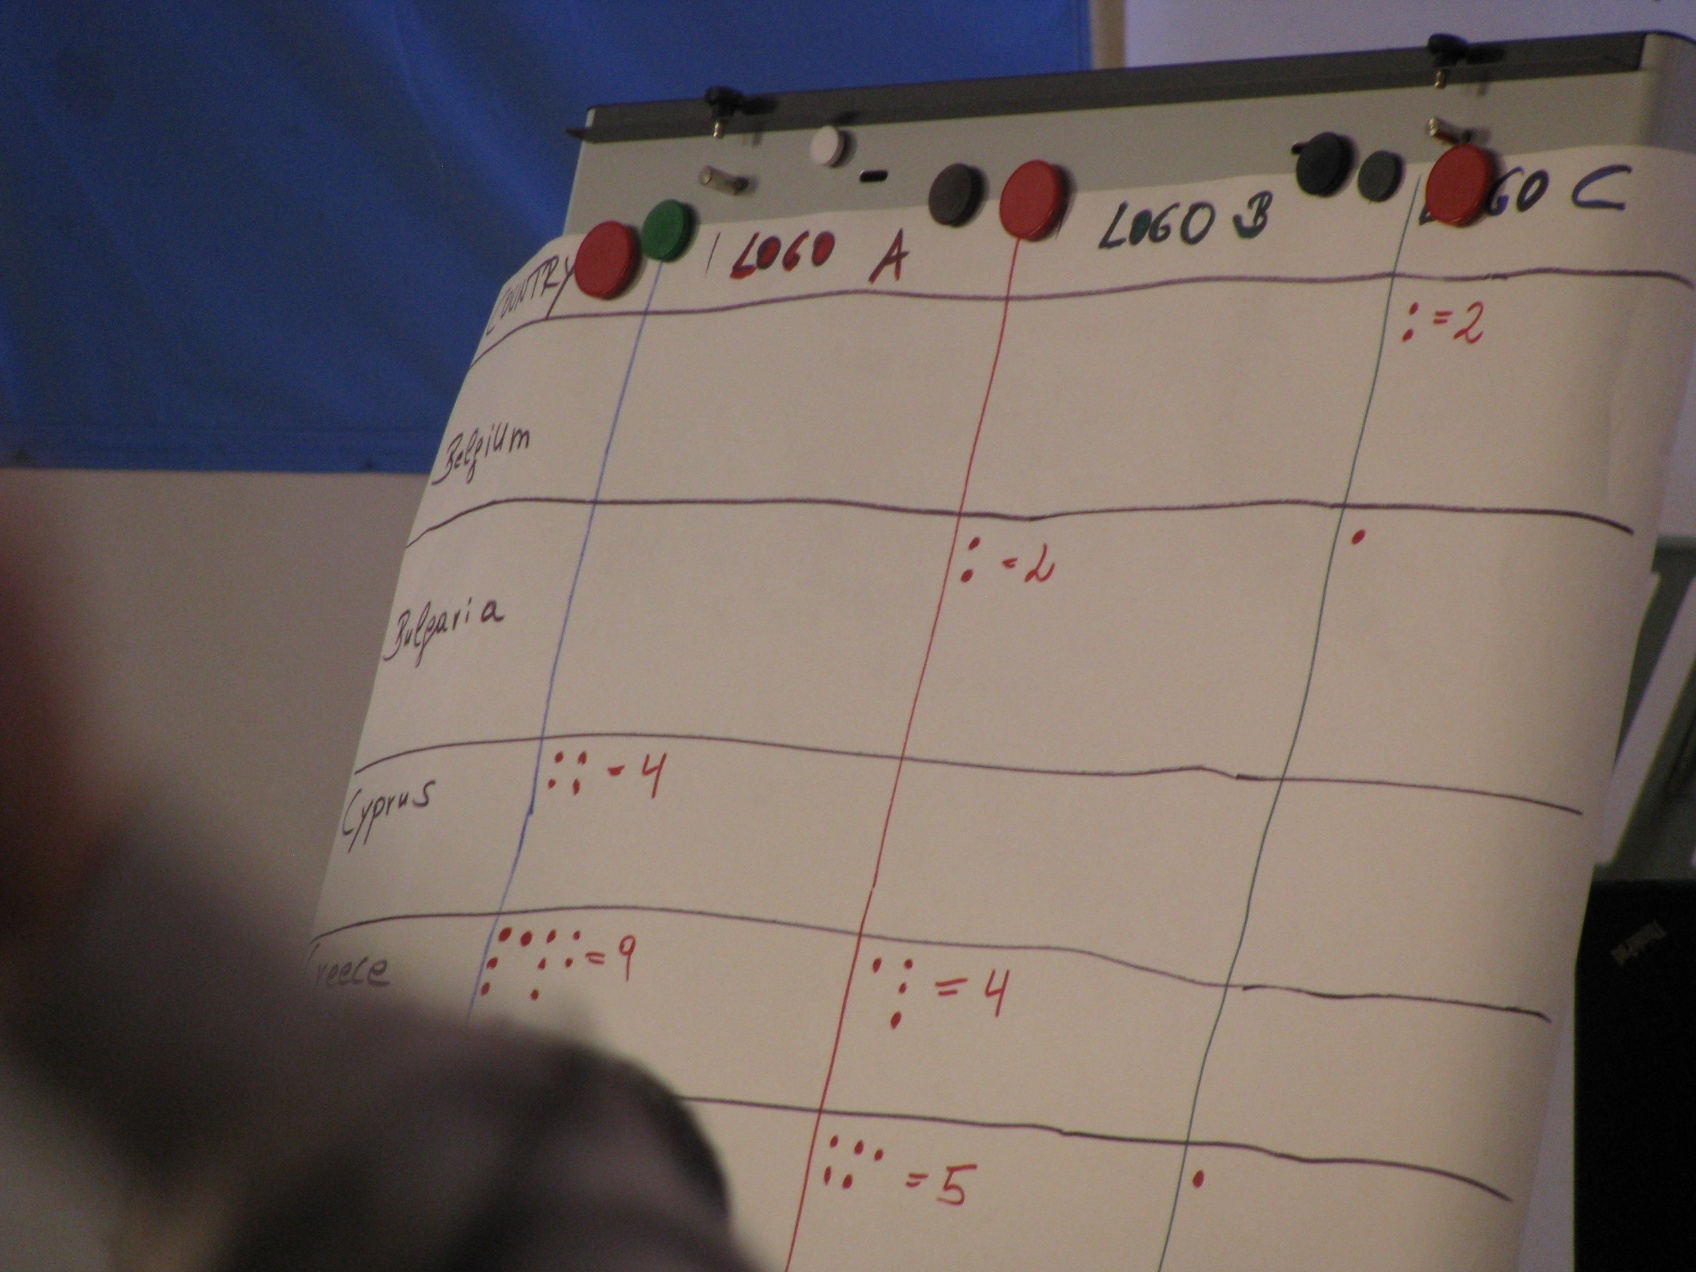 COUNTRY LOGO A LOGO B LOGO C
Belgium := 2
Bulgaria : = 2 .
Cyprus :: - 4
reece = 9 = 4
= 5 .